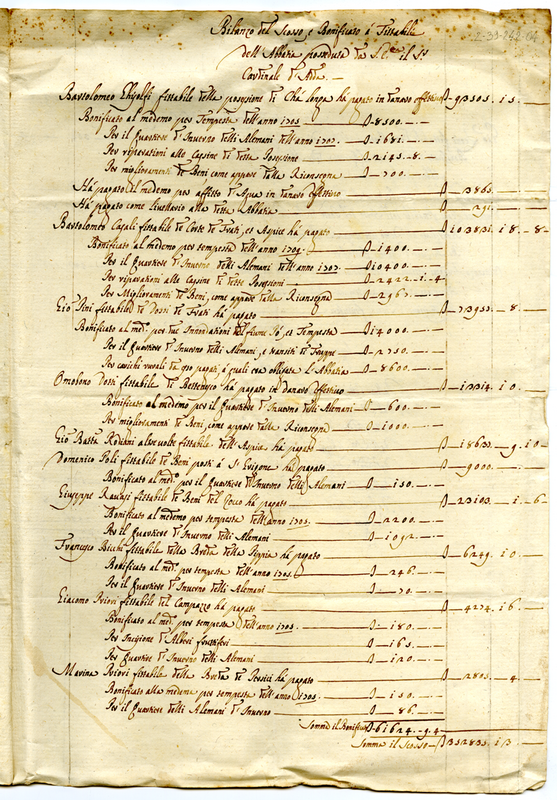 Bilanzo del Scosso, e Bonificato à Fittabili
dell'Abbatia posseduta da S. Em.za il Sr
Cardinale d'Adda. —
Bartolomeo Ghisolfi fittabile della possessione di Cha longa hà pagato in danaro effettivo 93505. 15.
Bonificato al medemo per Tempesta dell'anno 1705. 8500.
Per il Quartiere d'Inverno delli Alemani dell'anno 1707. 1681.
Per riparationi alle Cassine di detta Possessione 2145. 8.
Per miglioramenti de Beni come appare dalla Riconsegna 700.
Hà pagato al medemo per affitto d'Aqua in danaro effettivo 3865.
Hà pagato come livellario alla detta Abbatia 291.
Bartolomeo Casali fittabile de Corte de Frati, et Aspice hà pagato 103831. 18. 8
Bonificato al medemo per tempesta dell'anno 1709. 1400.
Per il Quartiere d'Inverno delli Alemani dell'anno 1707. 10400.
Per riparationi alle Cassine di dette Possessioni 2422. 1. 4
Per Miglioramenti de Beni, come appare dalla Riconsegna 2967.
Gio Pini fittabile de Dossi de Frati hà pagato 73953. 8.
Bonificato al med.o per due Innondationi del fiume Pò, et Tempesta 14000.
Per il Quartiere d'Inverno delli Alemani, e transiti de Truppe 2750.
Per carichi rurali da esso pagati, à quali era obligata l'Abbatia 8600.
Omobono Dosi fittabile de Bettenesco hà pagato in danaro effettivo 13314. 10.
Bonificato al medemo per il Quartiere d'Inverno delli Alemani 600.
Per miglioramenti de Beni, come appare dalla Riconsegna 1000.
Gio Batta Rodiani altre volte fittabile dell'Aspice hà pagato 18633. 9. 10
Domenico Poli fittabile de Beni posti à S. Evigone hà pagato 9000.
Bonificato al med.o per il Quartiere d'Inverno delli Alemani 150.
Giuseppe Ravasi fittabile de Beni del Zocco hà pagato 23103. 1. 6
Bonificato al medemo per tempesta dell'anno 1705. 2200.
Per il Quartiere d'Inverno delli Alemani 1092.
Francesco Bicchi fittabile della Breda della Pippia hà pagato 6249. 10.
Bonificato al med.o per tempesta dell'anno 1705. 246.
Per il Quartiere d'Inverno delli Alemani 70.
Giacomo Priori fittabile del Campazzo hà pagato 4274. 16.
Bonificato al med.o per tempesta dell'anno 1705. 180.
Per Incisione d'Alberi fruttiferi 165.
Per Quartiere d'Inverno delli Alemani 120.
Marina Priori fittabile della Breda de Persici hà pagato 2805. 4.
Bonificato alla medema per tempesta dell'anno 1705. 150.
Per il Quartiere delli Alemani d'Inverno 86.
Somma il Bonificato 61624. 9. 4
Somma il Scosso 352835. 13.